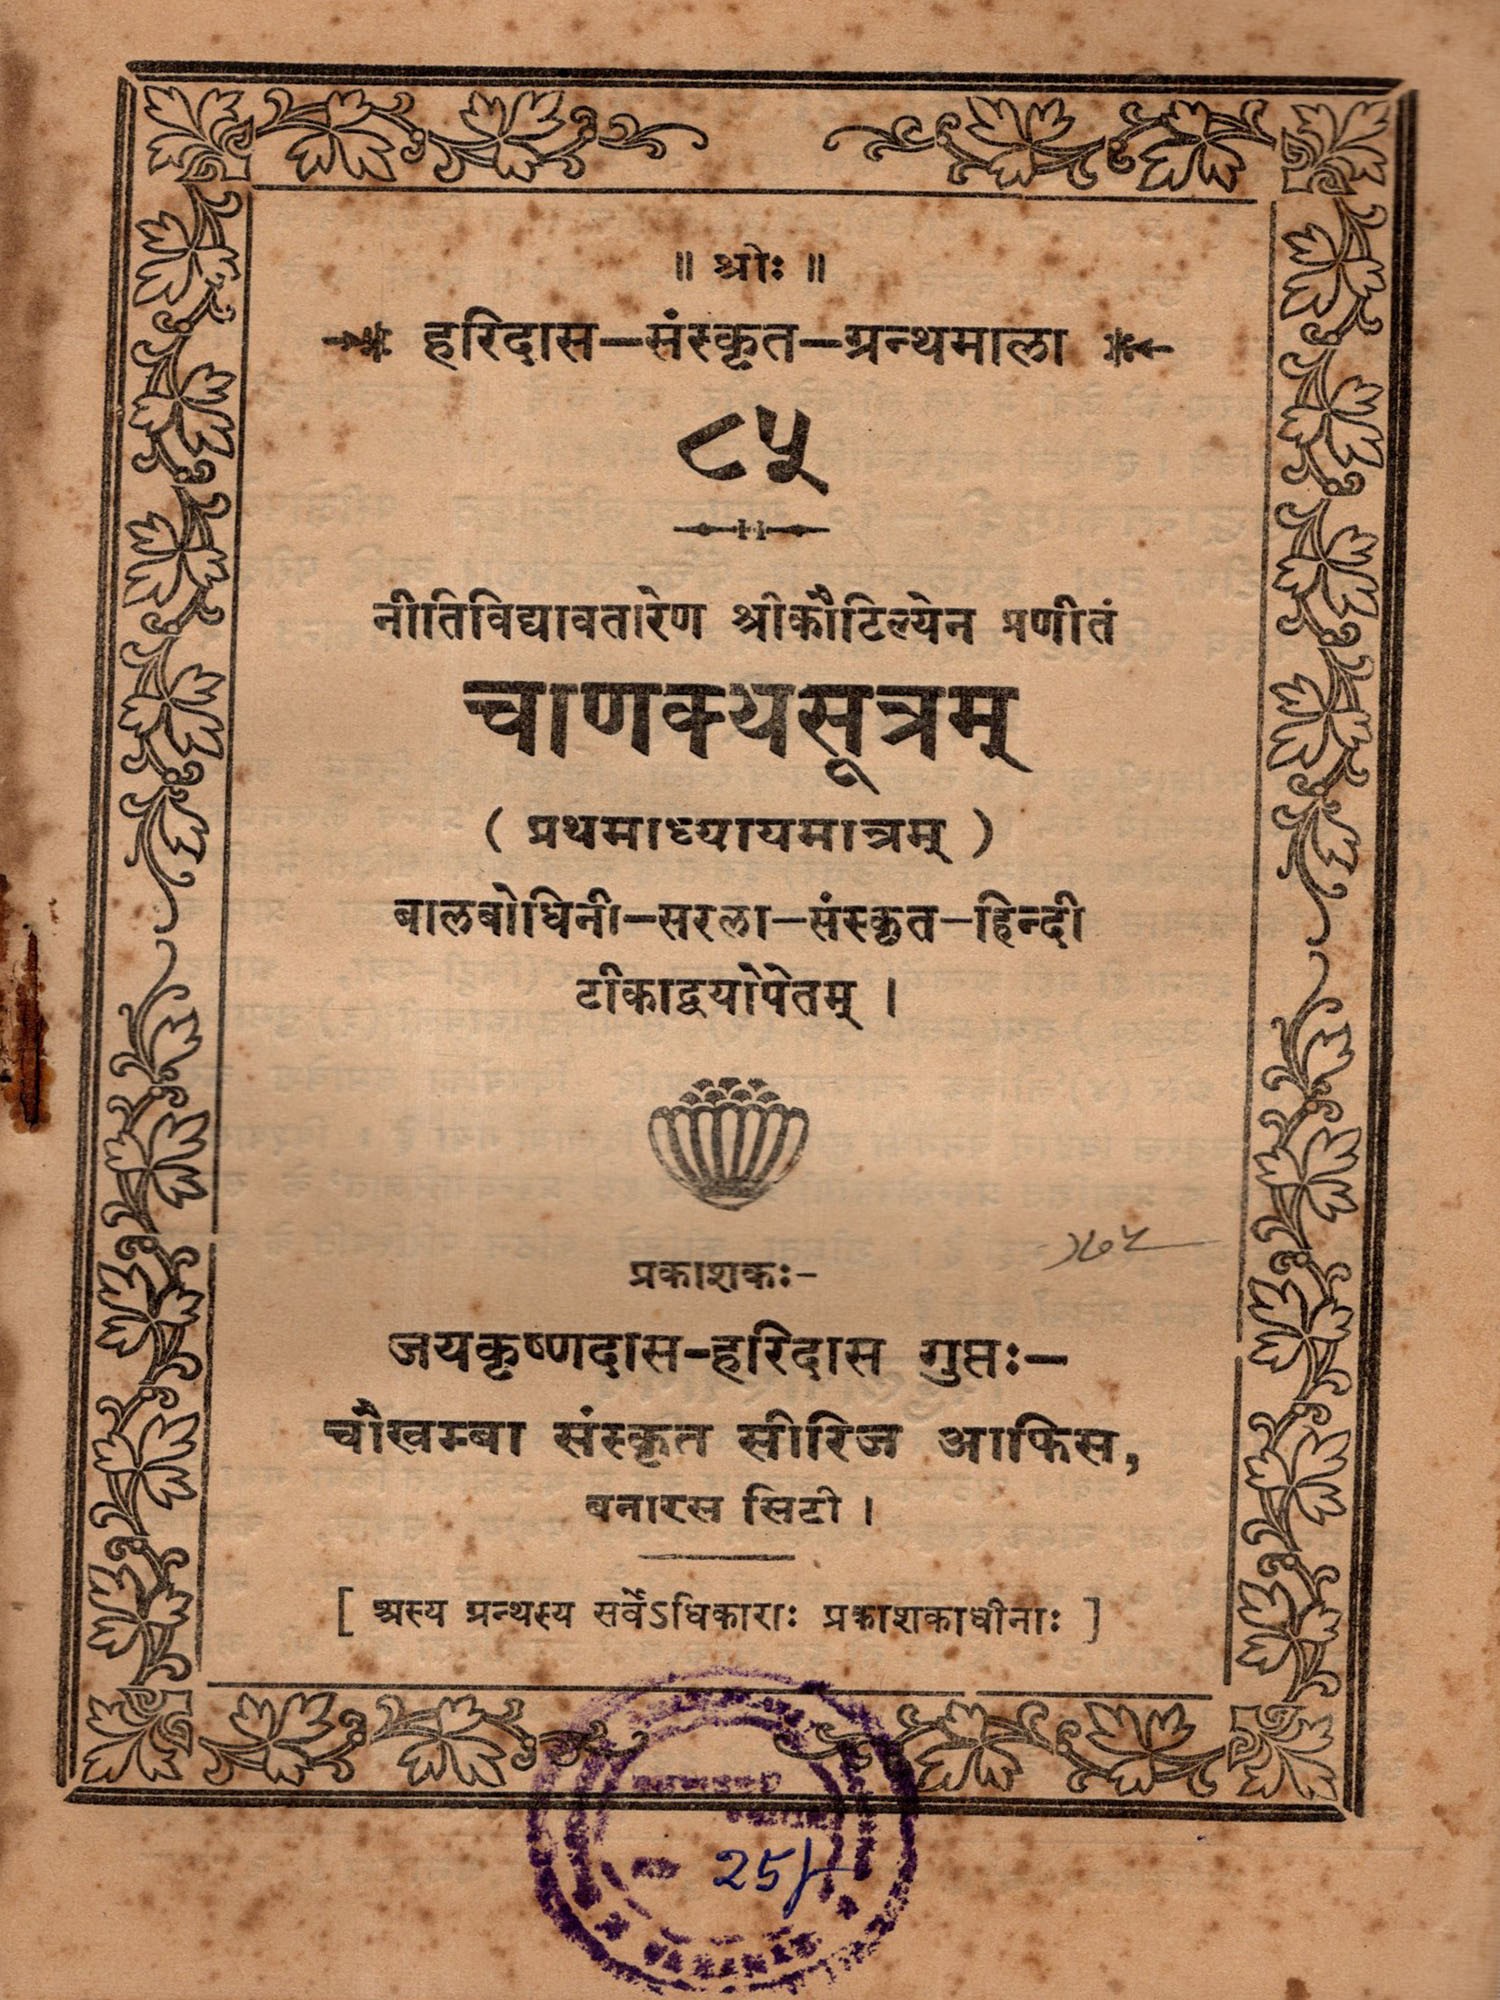 ॥ श्रीः ॥
हरिदास–संस्कृत–ग्रन्थमाला
८५
नीतिविद्यावतारेण श्रीकौटिल्येन प्रणीतं
चाणक्यसूत्रम्
( प्रथमाध्यायमात्रम् )
बालबोधिनी–सरला–संस्कृत–हिन्दी
टीकाद्वयोपेतम् ।
प्रकाशकः-
जयकृष्णदास-हरिदास गुप्तः–
चौखम्बा संस्कृत सीरिज आफिस,
बनारस सिटी ।
[ अस्य ग्रन्थस्य सर्वेऽधिकाराः प्रकाशकाधीनाः ]
25/-